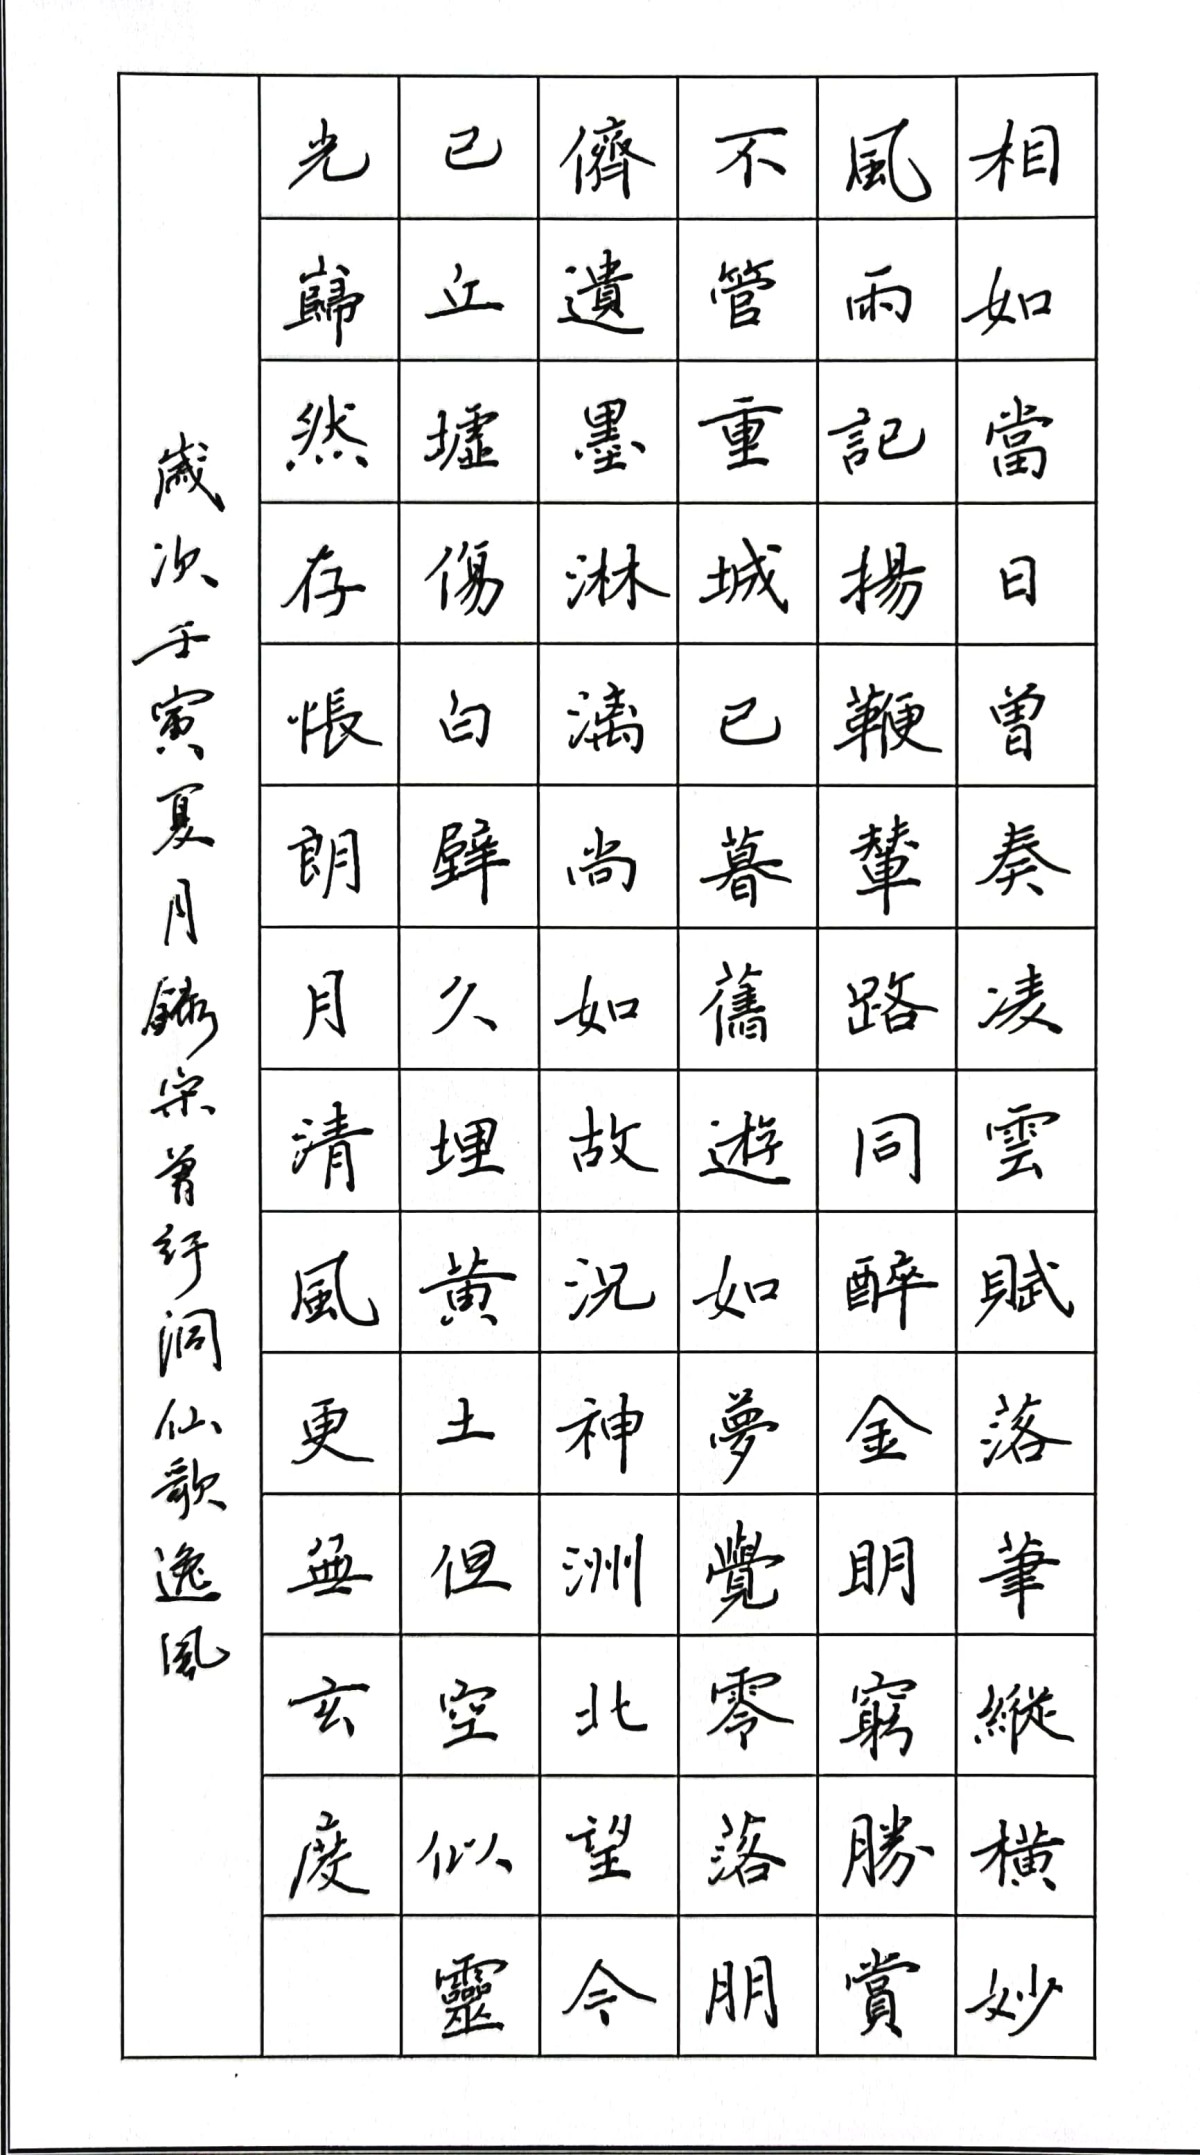 相如當日曾奏凌雲賦落筆縱橫妙
風雨記揚鞭輦路同醉金明窮勝賞
不管重城已暮舊遊如夢覺零落朋
儕遺墨淋漓尚如故況神洲北望今
已丘墟傷白璧久埋黃土但空似靈
光巋然存悵朗月清風更無玄度
歲次壬寅夏月錄宋曾紆洞仙歌逸風